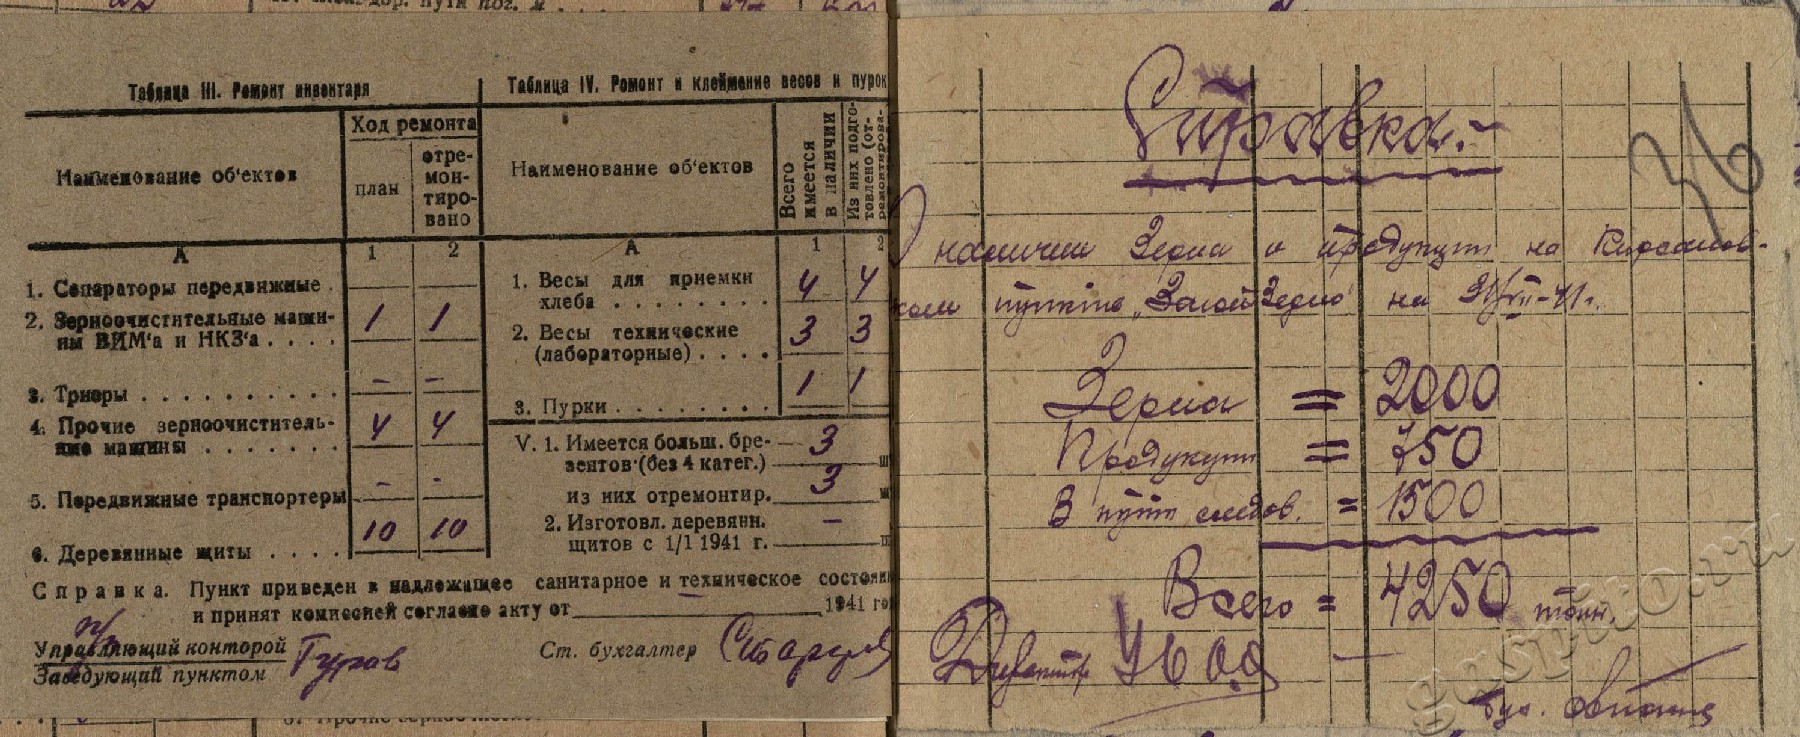 Таблица III. Ремонт инвентаря
Наименование об'ектов
Ход ремонта
план
отре-
мон-
тиро-
вано
А 1 2
1. Сепараторы передвижные .
2. Зерноочистительные маши-
ны ВИМ'а и НКЗ'а . . . . 1 1
3. Триеры . . . . . . . . . . – –
4. Прочие зерноочиститель-
ные машины . . . . . . . 4 4
5. Передвижные транспортеры - -
6. Деревянные щиты . . . . 10 10
Таблица IV. Ремонт и клеймение весов и пурок
Наименование об'ектов
Всего
имеется
в наличии
Из них подго-
товлено (от-
ремонтирова-
А 1 2
1. Весы для приемки
хлеба . . . . . . . . 4 4
2. Весы технические
(лабораторные) . . . . 3 3
3. Пурки . . . . . . . . 1 1
V. 1. Имеется больш. бре-
зентов (без 4 катег.) 3
из них отремонтир. 3
2. Изготовл. деревянн.
щитов с 1/1 1941 г. –
Справка. Пункт приведен в надлежащее санитарное и техническое состояни
и принят комиссией согласно акту от 1941 го
Управляющий конторой
Заведующий пунктом
Гуров
Ст. бухгалтер
Справка.-
36
О наличии Зерна и продукт на Кирсанов-
ком пункте „Заготзерно" на 31/VII-41г.
Зерна = 2000
Продукт = 750
В пути следов. = 1500
Всего = 4250 тонн.
Директор
Бух.
gaspito.ru